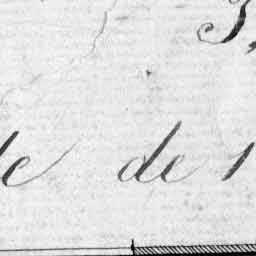 3,
le de 1